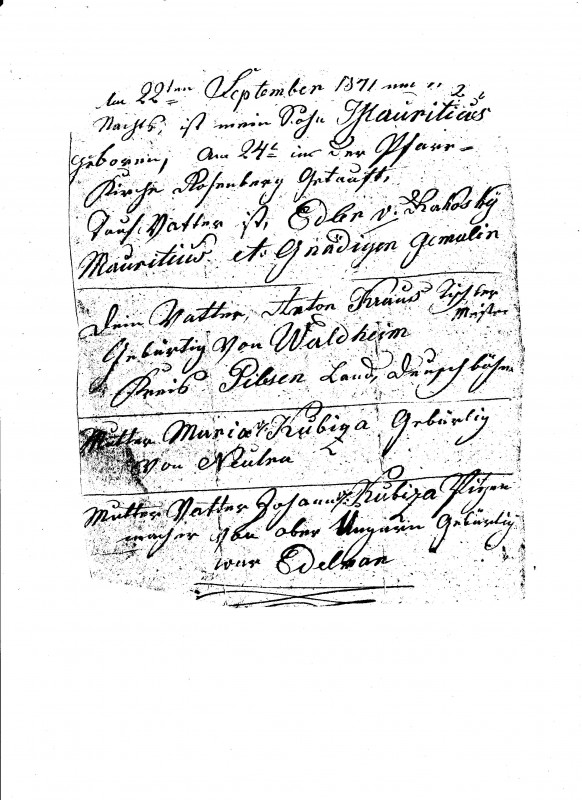 Am 22ten September 1871 um 2
Nachts, ist mein Sohn Mauritius
geboren, Am 24t in der Pfarr-
Kirche Rosenberg Getauft,
Tauf Vatter ist, Edler v: Rakosky
Mauritius et: Gnädigen Gemalin
Dein Vatter, Anton Kraus Tischler
Meister
Gebürtig von Waldheim
Kreis Pilsen Land, Deuschböhm
Mutter Maria v: Kubiza Gebürtig
von Neutra
Mutter Vatter Johann v: Kubiza
macher von ober Ungarn Gebürtig
war Edelman